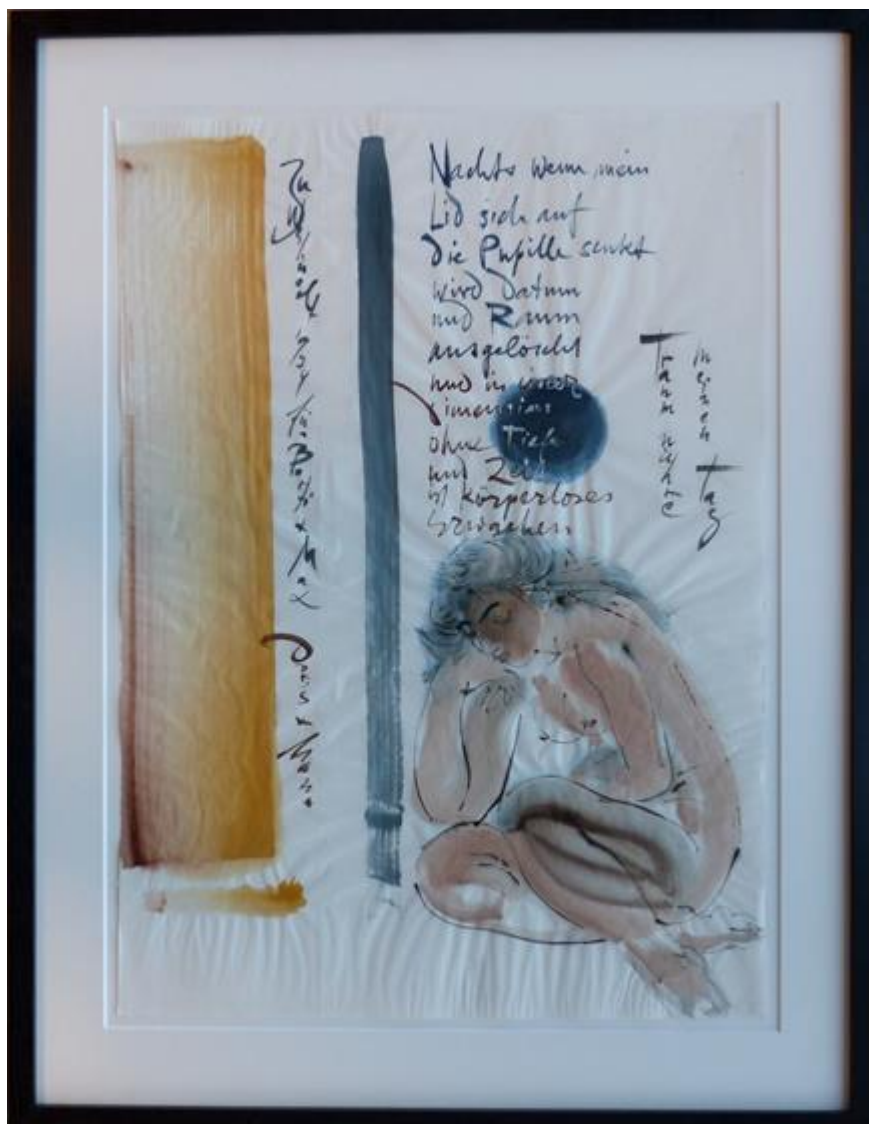 Nachts wenn mein
Lid sich auf
die Pupille senkt
wird Datum
und Raum
ausgelöscht
und in einer
Dimension
ohne Tiefe
und Zeit
ist körperloses
Traum nähre
meinen Tag
Zu
für
Max
Doris +